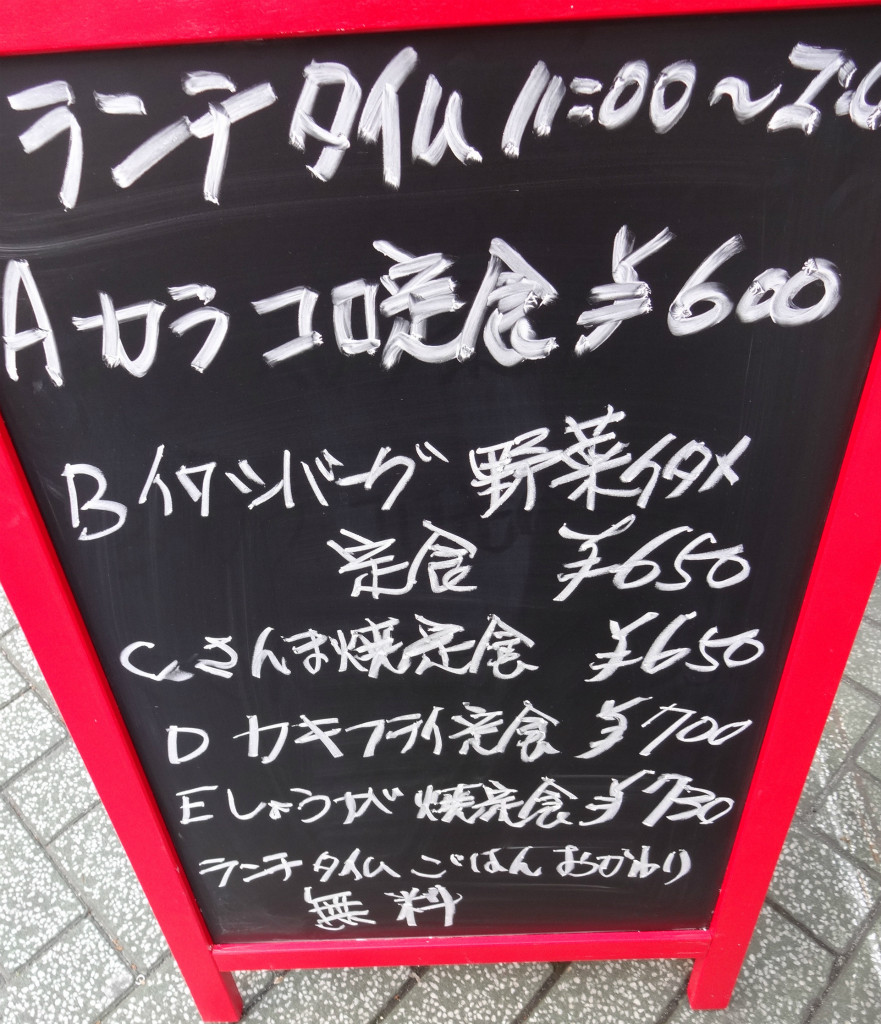 ランチタイム 11:00〜2:0
A カラコロ定食 ¥600
B イワシバーグ 野菜イタメ
定食 ¥650
C さんま焼定食 ¥650
D カキフライ定食 ¥700
E しょうが焼定食 ¥730
ランチタイム ごはん おかわり
無料